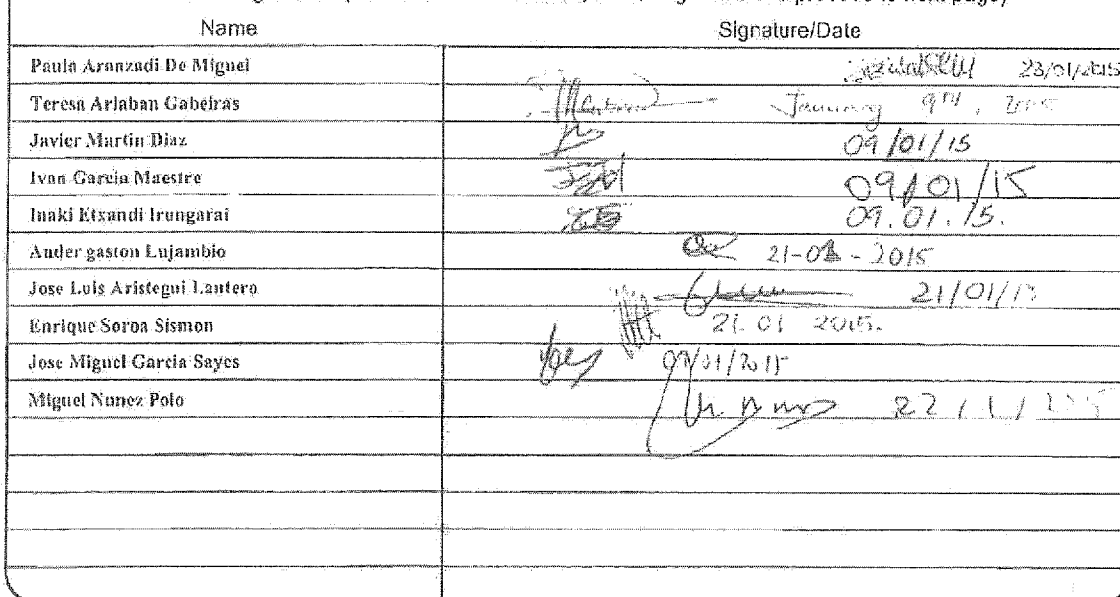 Name Signature/Date
Paula Aranzadi De Miguel 23/01/2015
Teresa Arlaban Gabeiras January 9TH, 2015
Javier Martin Diaz 09/01/15
Ivan Garcia Maestre 09/01/15
Inaki Etxandi Irungarai 09.01.15.
Ander gaston Lujambio 21-01-2015
Jose Luis Aristegui Lantero 21/01/15
Enrique Soroa Sismon 21.01 2015.
Jose Miguel Garcia Sayes 09/01/2015
Miguel Nunez Polo 22/1/2015